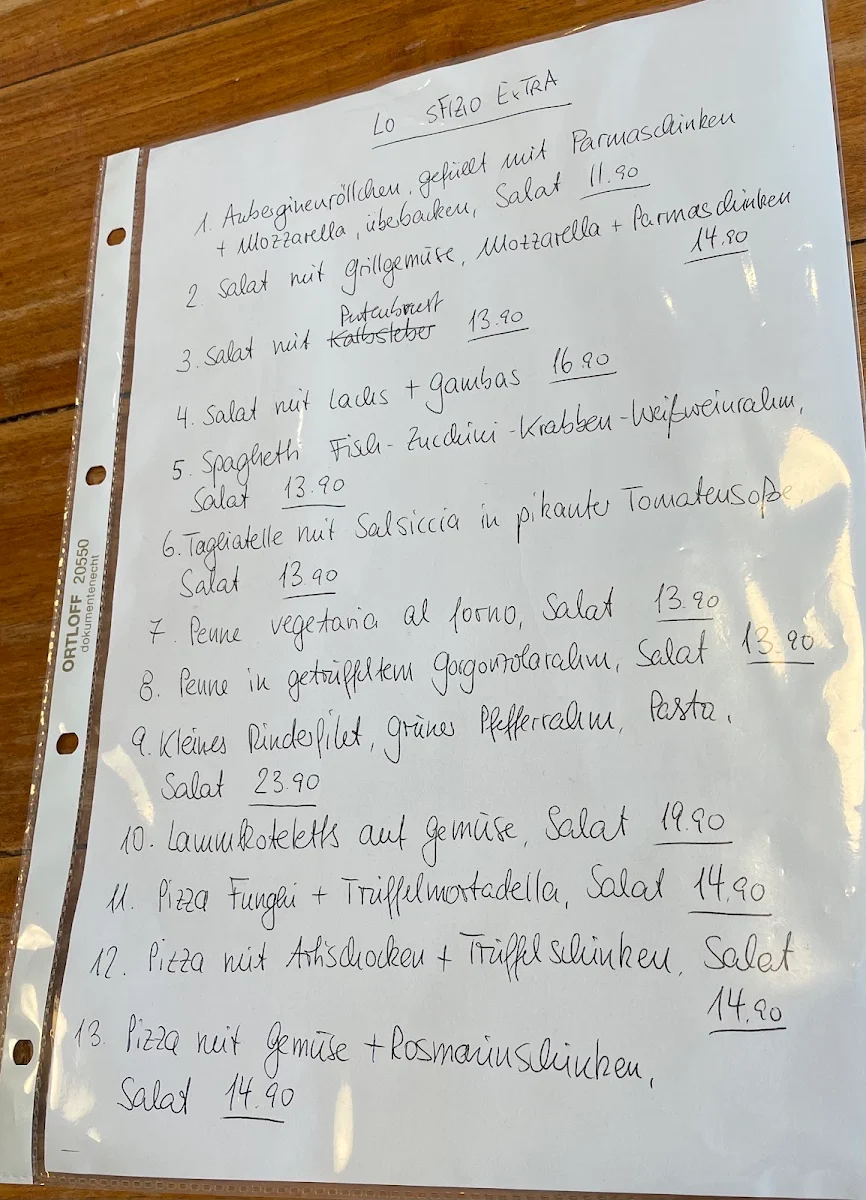 LO SFIZIO EXTRA
1. Auberginenröllchen, gefüllt mit Parmaschinken
+ Mozzarella, überbacken, Salat 11.90
2. Salat mit Grillgemüse, Mozzarella + Parmaschinken
14.90
Putenbrust
3. Salat mit Kalbsleber 13.90
4. Salat mit Lachs + Gambas 16.90
5. Spaghetti Fisch-Zucchini-Krabben-Weißweinrahm,
Salat 13.90
6. Tagliatelle mit Salsiccia in pikanter Tomatensoße,
Salat 13.90
7. Penne vegetaria al forno, Salat 13.90
8. Penne in getrüffeltem Gorgonzolarahm, Salat 13.90
9. Kleines Rinderfilet, grünes Pfefferrahm, Pasta,
Salat 23.90
10. Lammkoteletts auf Gemüse, Salat 19.90
11. Pizza Funghi + Trüffelmortadella, Salat 14.90
12. Pizza mit Artischocken + Trüffelschinken, Salat
14.90
13. Pizza mit Gemüse + Rosmarinschinken,
Salat 14.90
ORTLOFF 20550
dokumentenecht